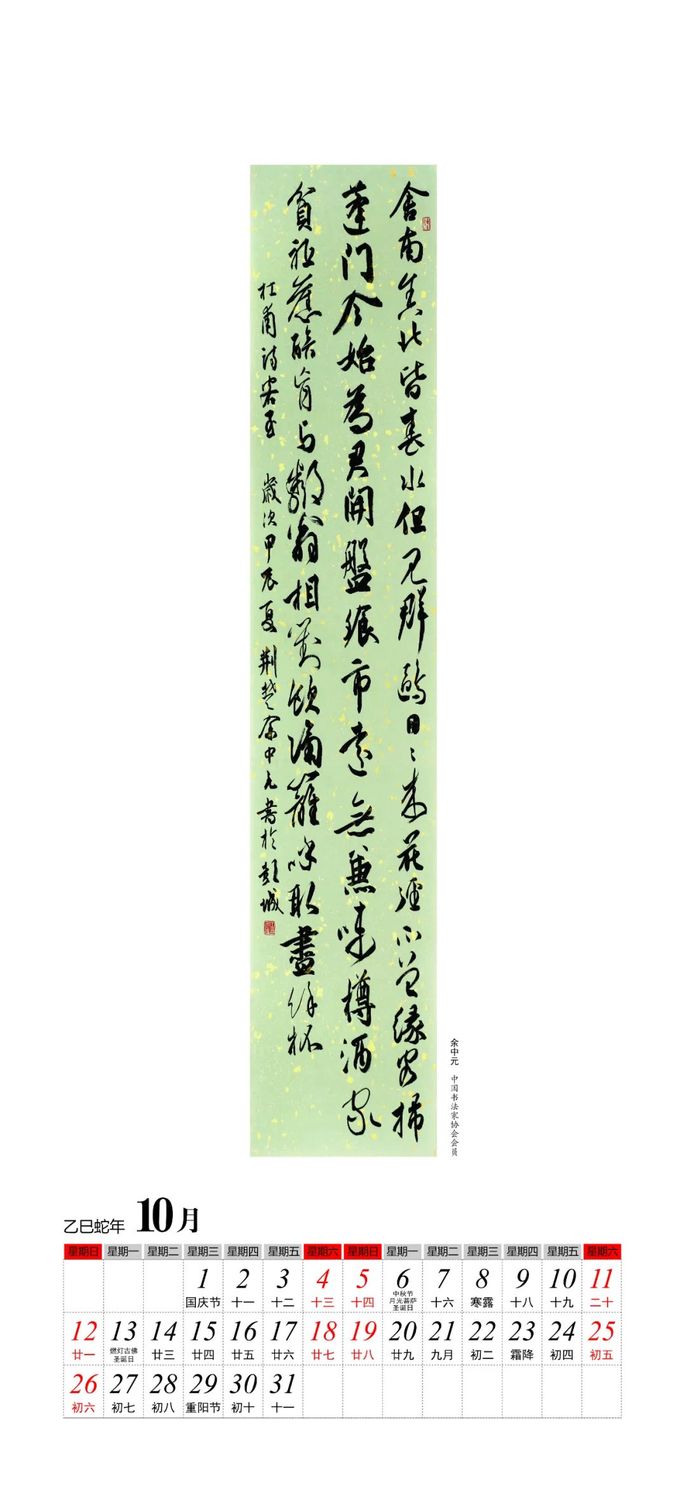 舍南舍北皆春水但见群鷗日〻来花徑不曾緣客掃
蓬门今始為君開盤飧市遠無兼味樽酒家
貧祗舊醅肯与鄰翁相對飲隔籬呼取盡餘杯
杜甫詩客至 歲次甲辰夏荆楚余中元書於彭城
余中元 中国书法家协会会员
乙巳蛇年 10月
星期日 星期一 星期二 星期三 星期四 星期五 星期六 星期日 星期一 星期二 星期三 星期四 星期五 星期六
1 2 3 4 5 6 7 8 9 10 11
国庆节 十一 十二 十三 十四 中秋节 月光菩萨 圣诞日 十六 寒露 十八 十九 二十
12 13 14 15 16 17 18 19 20 21 22 23 24 25
廿一 燃灯古佛 圣诞日 廿三 廿四 廿五 廿六 廿七 廿八 廿九 九月 初二 霜降 初四 初五
26 27 28 29 30 31
初六 初七 初八 重阳节 初十 十一